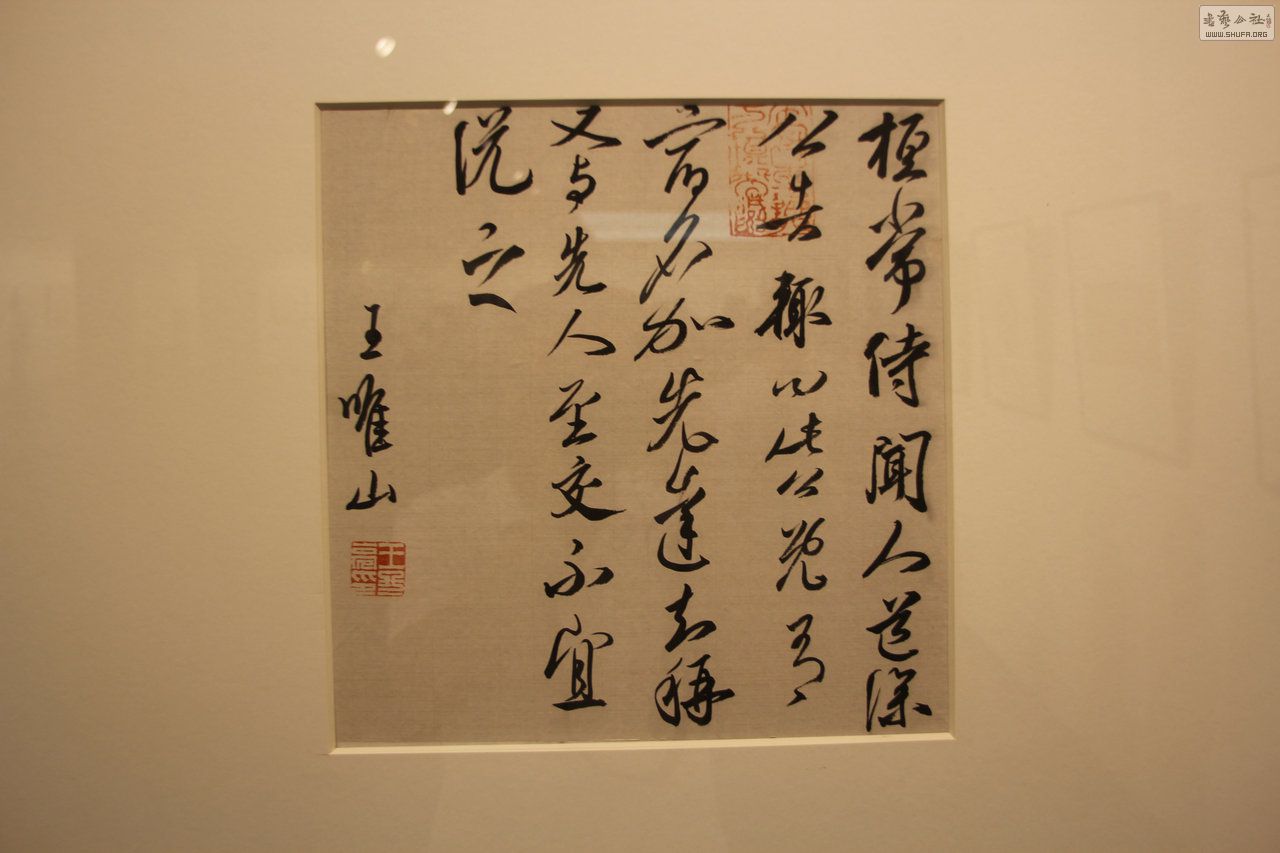 桓常侍聞人道深
公者輒曰此公既有
宿名加先達知稱
又与先人至交不宜
說之
王唯山
書藝公社
WWW.SHUFA.ORG